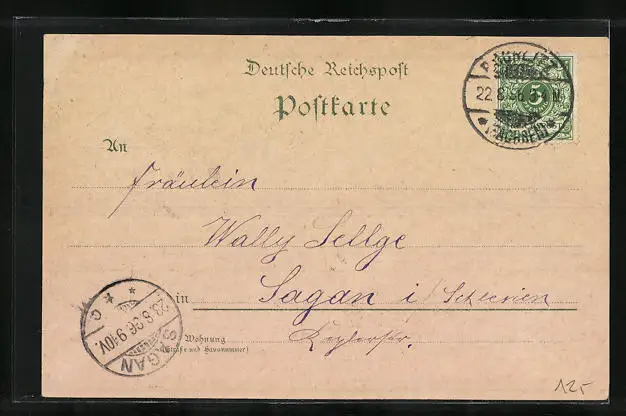 Deutsche Reichspost
Postkarte
22.8.96
5
An
Fräulein
Wally Sellge
in Sagan i/Schlesien
Wohnung
(Straße und Hausnummer)
SAGAN
23.8.96 9-10V.
* * C
125